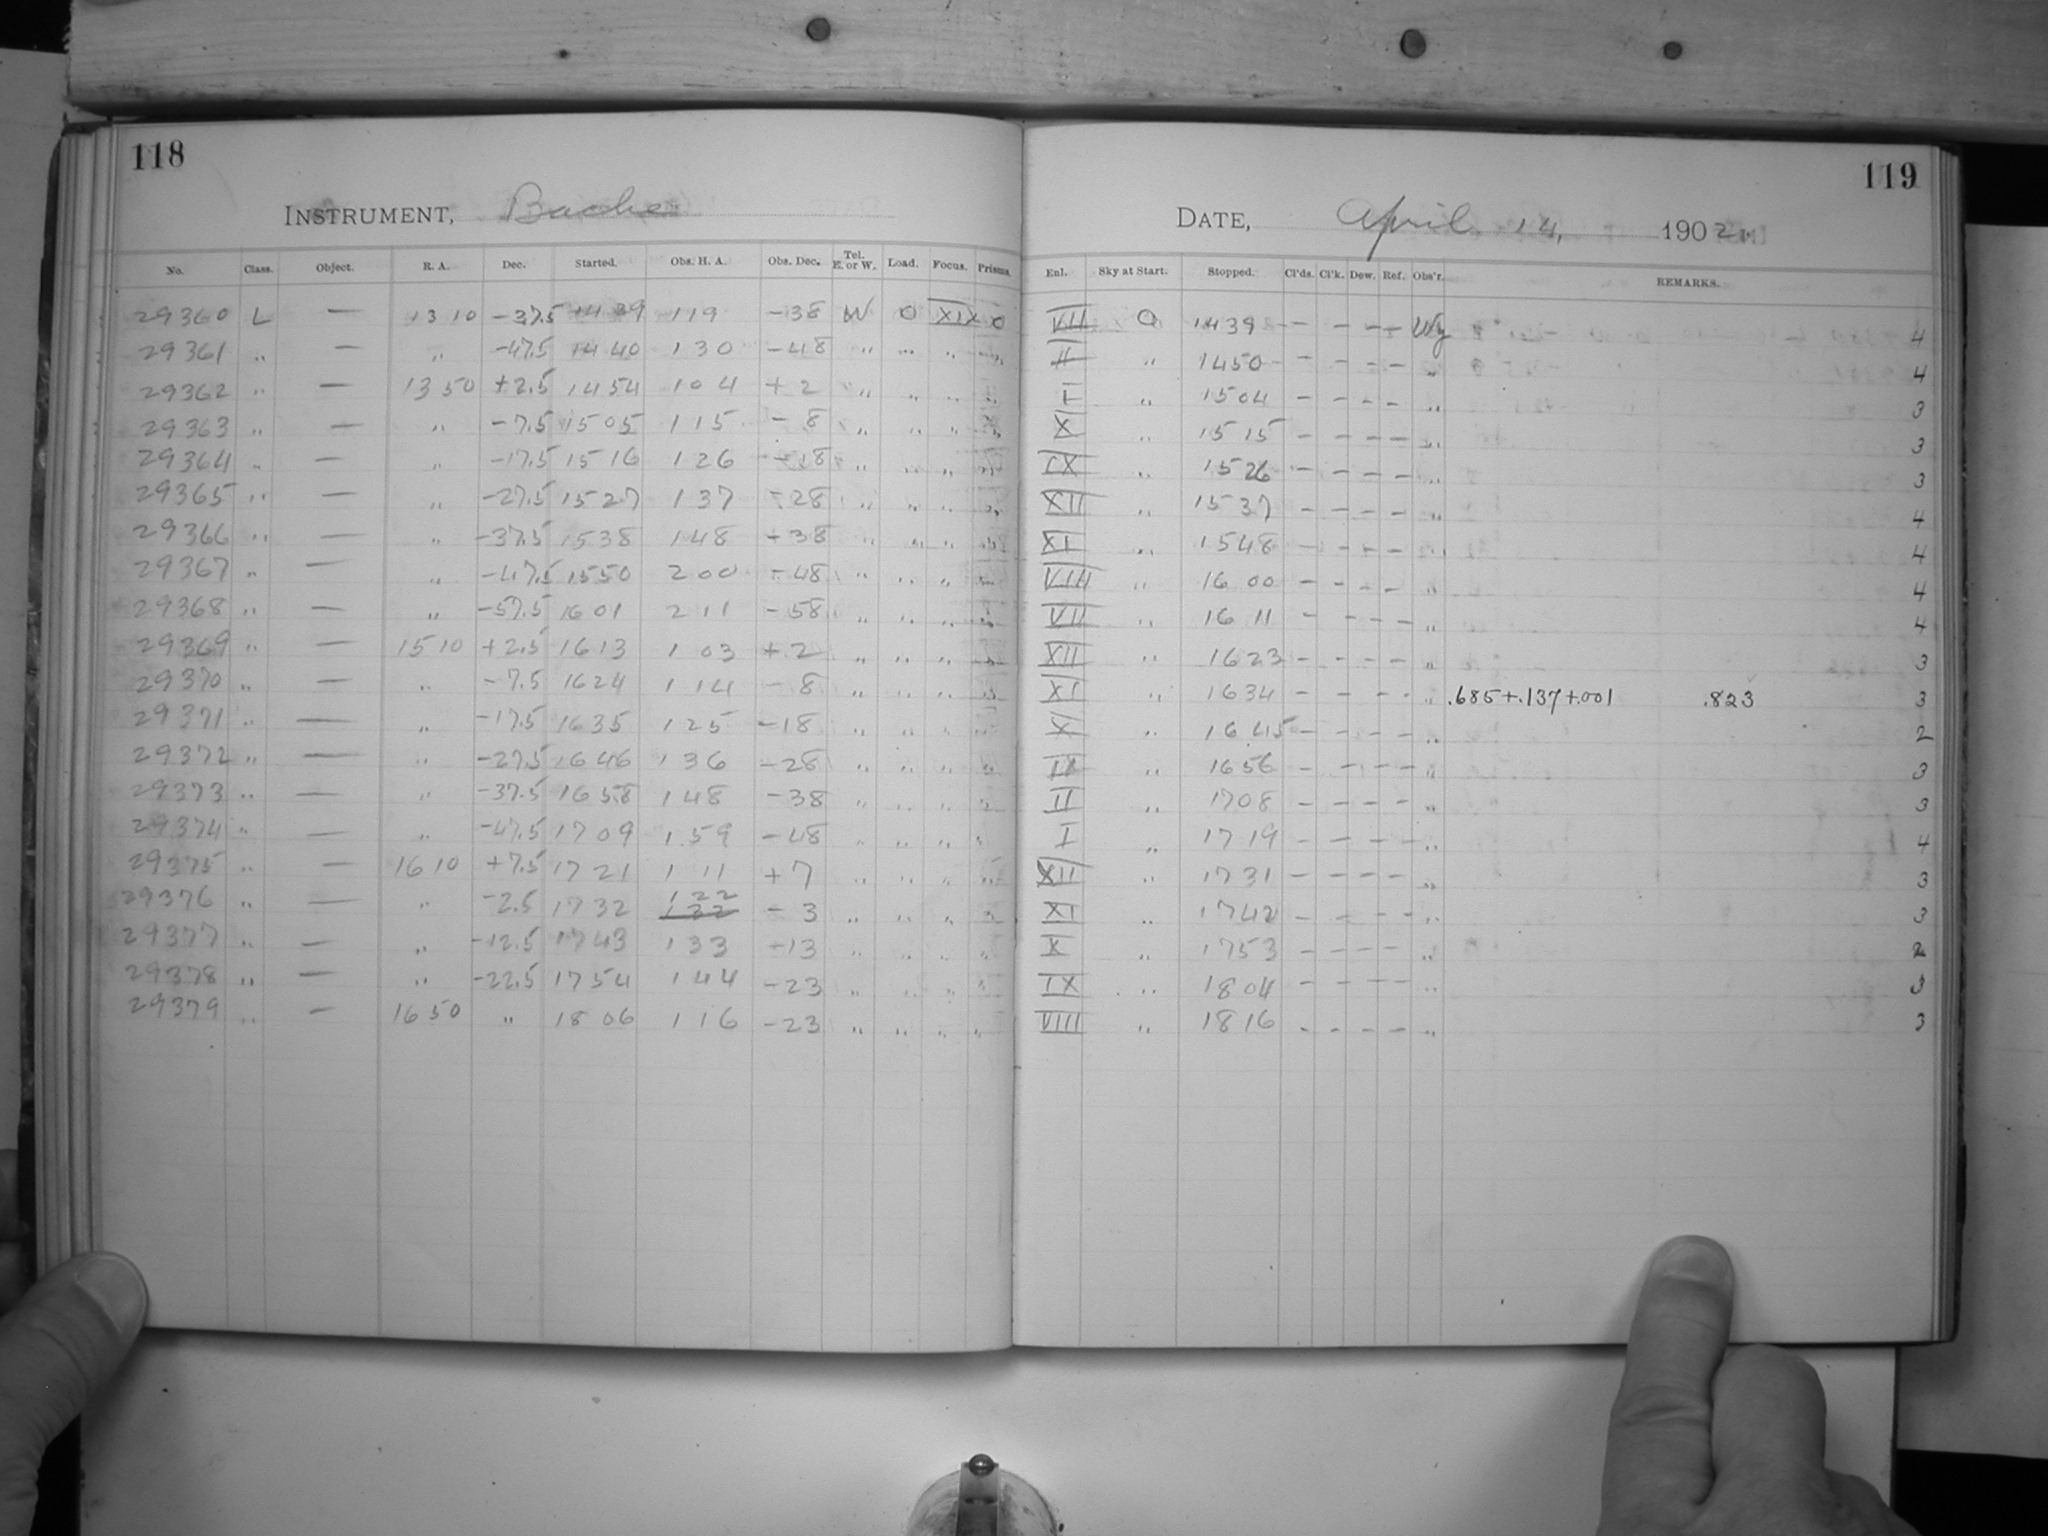 118
INSTRUMENT, Bache
No. Class. Object. R. A. Dec. Started. Obs. H. A. Obs. Dec. Tel. E. or W. Load. Focus. Prisms.
29360 L — 13 10 -37.5 14 39 1 19 -38 W 0 XIX 0
29361 " — " -47.5 14 40 1 30 -48 " " " "
29362 " — 13 50 +2.5 14 54 1 04 +2 " " " "
29363 " — " -7.5 15 05 1 15 -8 " " " "
29364 " — " -17.5 15 16 1 26 -18 " " " "
29365 " — " -27.5 15 27 1 37 -28 " " " "
29366 " — " -37.5 15 38 1 48 -38 " " " "
29367 " — " -47.5 15 50 2 00 -48 " " " "
29368 " — " -57.5 16 01 2 11 -58 " " " "
29369 " — 15 10 +2.5 16 13 1 03 +2 " " " "
29370 " — " -7.5 16 24 1 14 -8 " " " "
29371 " — " -17.5 16 35 1 25 -18 " " " "
29372 " — " -27.5 16 46 1 36 -28 " " " "
29373 " — " -37.5 16 58 1 48 -38 " " " "
29374 " — " -47.5 17 09 1 59 -48 " " " "
29375 " — 16 10 +7.5 17 21 1 11 +7 " " " "
29376 " — " -2.5 17 32 1 22 1 32 -3 " " " "
29377 " — " -12.5 17 43 1 33 -13 " " " "
29378 " — " -22.5 17 54 1 44 -23 " " " "
29379 " — 16 50 " 18 06 1 16 -23 " " " "
119
DATE, April 14, 1902.
Enl. Sky at Start. Stopped. Cl'ds. Cl'k. Dew. Ref. Obs'r. REMARKS.
VII 0 14 39 — — — — Wy 4
II " 14 50 — — — — " 4
I " 15 04 — — — — " 3
X " 15 15 — — — — " 3
IX " 15 26 — — — — " 3
XII " 15 37 — — — — " 4
XI " 15 48 — — — — " 4
VIII " 16 00 — — — — " 4
VII " 16 11 — — — — " 4
XII " 16 23 — — — — " 3
XI " 16 34 — — — — " .685+.137+.001 .823 3
X " 16 45 — — — — " 2
" 16 56 — — — — " 3
II " 17 08 — — — — " 3
I " 17 19 — — — — " 4
XII " 17 31 — — — — " 3
XI " 17 42 — — — — " 3
X " 17 53 — — — — " 2
IX " 18 04 — — — — " 3
VIII " 18 16 — — — — " 3